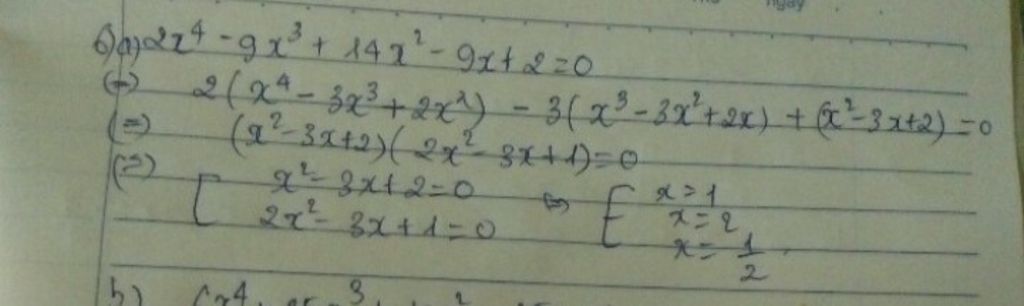 6)a) 2x⁴ - 9x³ + 14x² - 9x + 2 = 0
(=) 2(x⁴ - 3x³ + 2x²) - 3(x³ - 3x² + 2x) + (x² - 3x + 2) = 0
(=) (x² - 3x + 2)(2x² - 3x + 1) = 0
(=) [ x² - 3x + 2 = 0 ⇔ [ x = 1
2x² - 3x + 1 = 0 x = 2
x = 1/2
b)